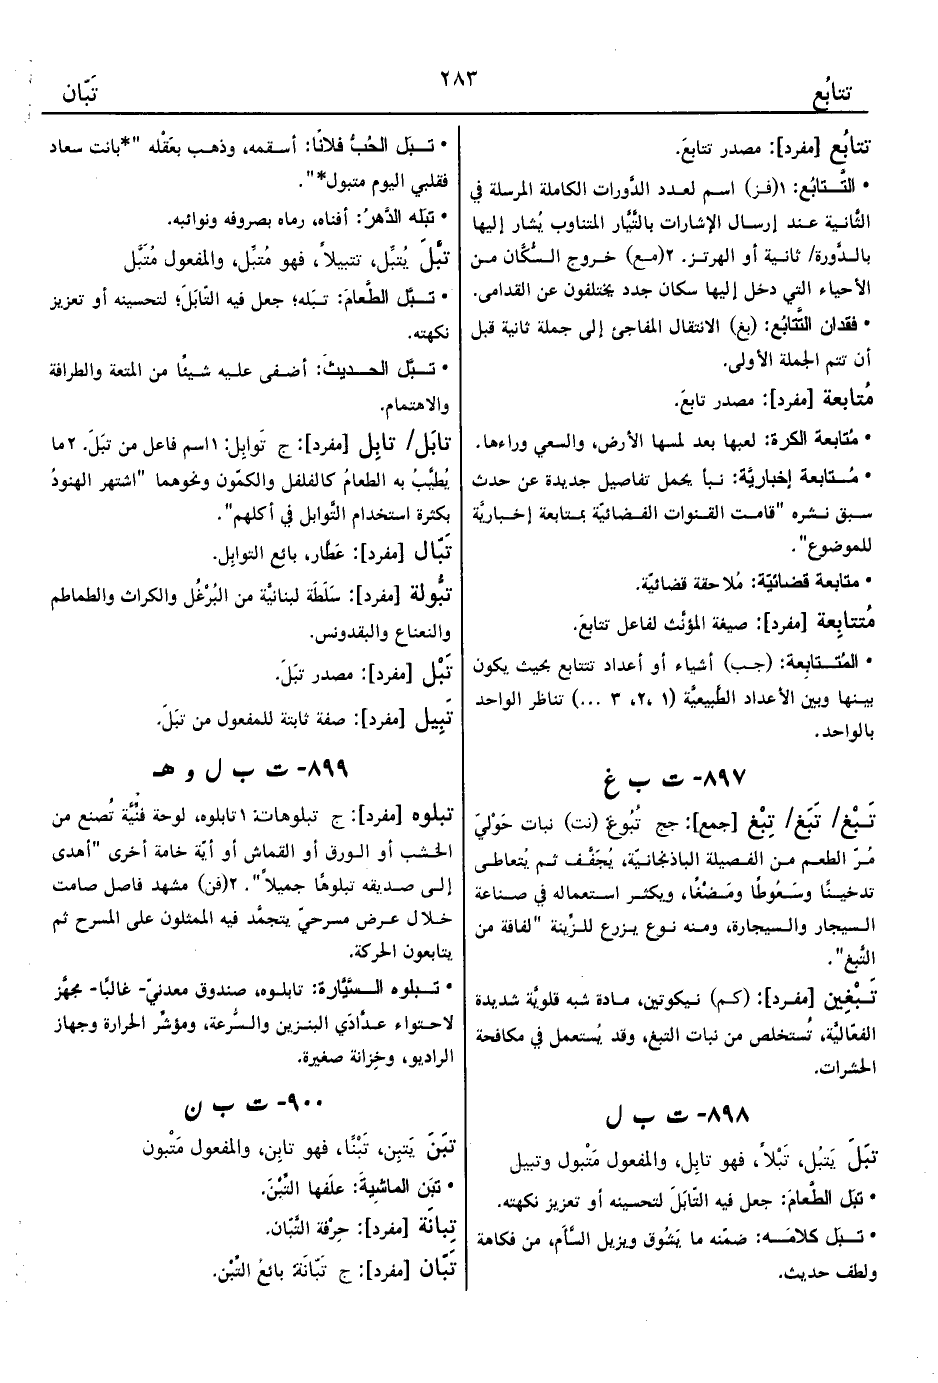 تتابُع
٢٨٣
تَبّان
تتابُع [مفرد]: مصدر تتابعَ.
• التَّتابُع: ١(فز) اسم لعدد الدَّورات الكاملة المرسلة في
الثَّانية عند إرسال الإشارات بالتَّيَّار المتناوب يُشار إليها
بالدَّورة/ ثانية أو الهرتز. ٢(مع) خروج السُّكَّان من
الأحياء التي دخل إليها سكان جدد يختلفون عن القدامى.
• فقدان التَّتابُع: (بغ) الانتقال المفاجئ إلى جملة ثانية قبل
أن تتم الجملة الأولى.
مُتابعة [مفرد]: مصدر تابعَ.
• مُتابعة الكرة: لعبها بعد لمسها الأرض، والسعي وراءها.
• مُتابعة إخباريَّة: نبأ يحمل تفاصيل جديدة عن حدث
سبق نشره "قامت القنوات الفضائيّة بمتابعة إخباريَّة
للموضوع".
• متابعة قضائيّة: مُلاحقة قضائيّة.
مُتتابِعة [مفرد]: صيغة المؤنَّث لفاعل تتابعَ.
• المُتتابعة: (جب) أشياء أو أعداد تتتابع بحيث يكون
بينها وبين الأعداد الطَّبيعيَّة (١ ،٢، ٣ ...) تناظر الواحد
بالواحد.
٨٩٧- ت ب غ
تَبْغ/ تَبَغ/ تِبْغ [جمع]: جج تُبُوغ: (نت) نبات حَوْليّ
مُرّ الطعم من الفصيلة الباذنجانيّة، يُجَفَّف ثم يُتعاطى
تدخينًا وسَعُوطًا ومَضْغًا، ويكثر استعماله في صناعة
السيجار والسيجارة، ومنه نوع يزرع للزِّينة "لفافة من
التَّبغ".
تَبْغين [مفرد]: (كم) نيكوتين، مادة شبه قلويَّة شديدة
الفعّاليَّة، تُستخلص من نبات التبغ، وقد يُستعمل في مكافحة
الحشرات.
٨٩٨- ت ب ل
تبَلَ يَتبُل، تَبْلاً، فهو تابِل، والمفعول مَتْبول وتبيل
• تبَل الطَّعامَ: جعل فيه التَّابَلَ لتحسينه أو تعزيز نكهته.
• تبَل كلامَه: ضمّنه ما يَشُوق ويزيل السَّأم، من فكاهة
ولطف حديث.
• تبَل الحُبُّ فلانًا: أسقمه، وذهب بعَقْله "*بانت سعاد
فقلبي اليوم متبول*".
• تبَله الدَّهرُ: أفناه، رماه بصروفه ونوائبه.
تبَّلَ يُتبِّل، تتبيلاً، فهو مُتبِّل، والمفعول مُتَبَّل
• تبَّل الطَّعامَ: تبَله؛ جعل فيه التّابَلَ؛ لتحسينه أو تعزيز
نكهته.
• تبَّل الحديثَ: أضفى عليه شيئًا من المتعة والطرافة
والاهتمام.
تابَل/ تابِل [مفرد]: ج تَوابِل: ١اسم فاعل من تبَلَ. ٢ما
يُطيَّبُ به الطعامُ كالفلفل والكمّون ونحوهما "اشتهر الهنودُ
بكثرة استخدام التَّوابل في أكلهم".
تَبّال [مفرد]: عَطَّار، بائع التوابِل.
تبُّولة [مفرد]: سَلَطَة لبنانيَّة من البُرْغُل والكراث والطماطم
والنعناع والبقدونس.
تَبْل [مفرد]: مصدر تبَلَ.
تَبِيل [مفرد]: صفة ثابتة للمفعول من تبَلَ.
٨٩٩- ت ب ل و هـ
تبلوه [مفرد]: ج تبلوهات: ١تابلوه، لوحة فنِّيَّة تُصنع من
الخشب أو الورق أو القماش أو أيّة خامة أخرى "أهدى
إلى صديقه تبلوهًا جميلاً". ٢(فن) مشهد فاصل صامت
خلال عرض مسرحيّ يتجمَّد فيه الممثلون على المسرح ثم
يتابعون الحركة.
• تبلوه السَّيَّارة: تابلوه، صندوق معدنيّ- غالبًا- مجهَّز
لاحتواء عدَّادَي البنزين والسُّرعة، ومؤشِّر الحرارة وجهاز
الراديو، وخِزانة صغيرة.
٩٠٠- ت ب ن
تبَنَ يَتبِن، تَبْنًا، فهو تابِن، والمفعول مَتْبون
• تبَن الماشيةَ: علَفها التِّبْنَ.
تِبانَة [مفرد]: حِرْفة التَّبّان.
تَبّان [مفرد]: ج تَبّانَة: بائعُ التِّبْن.